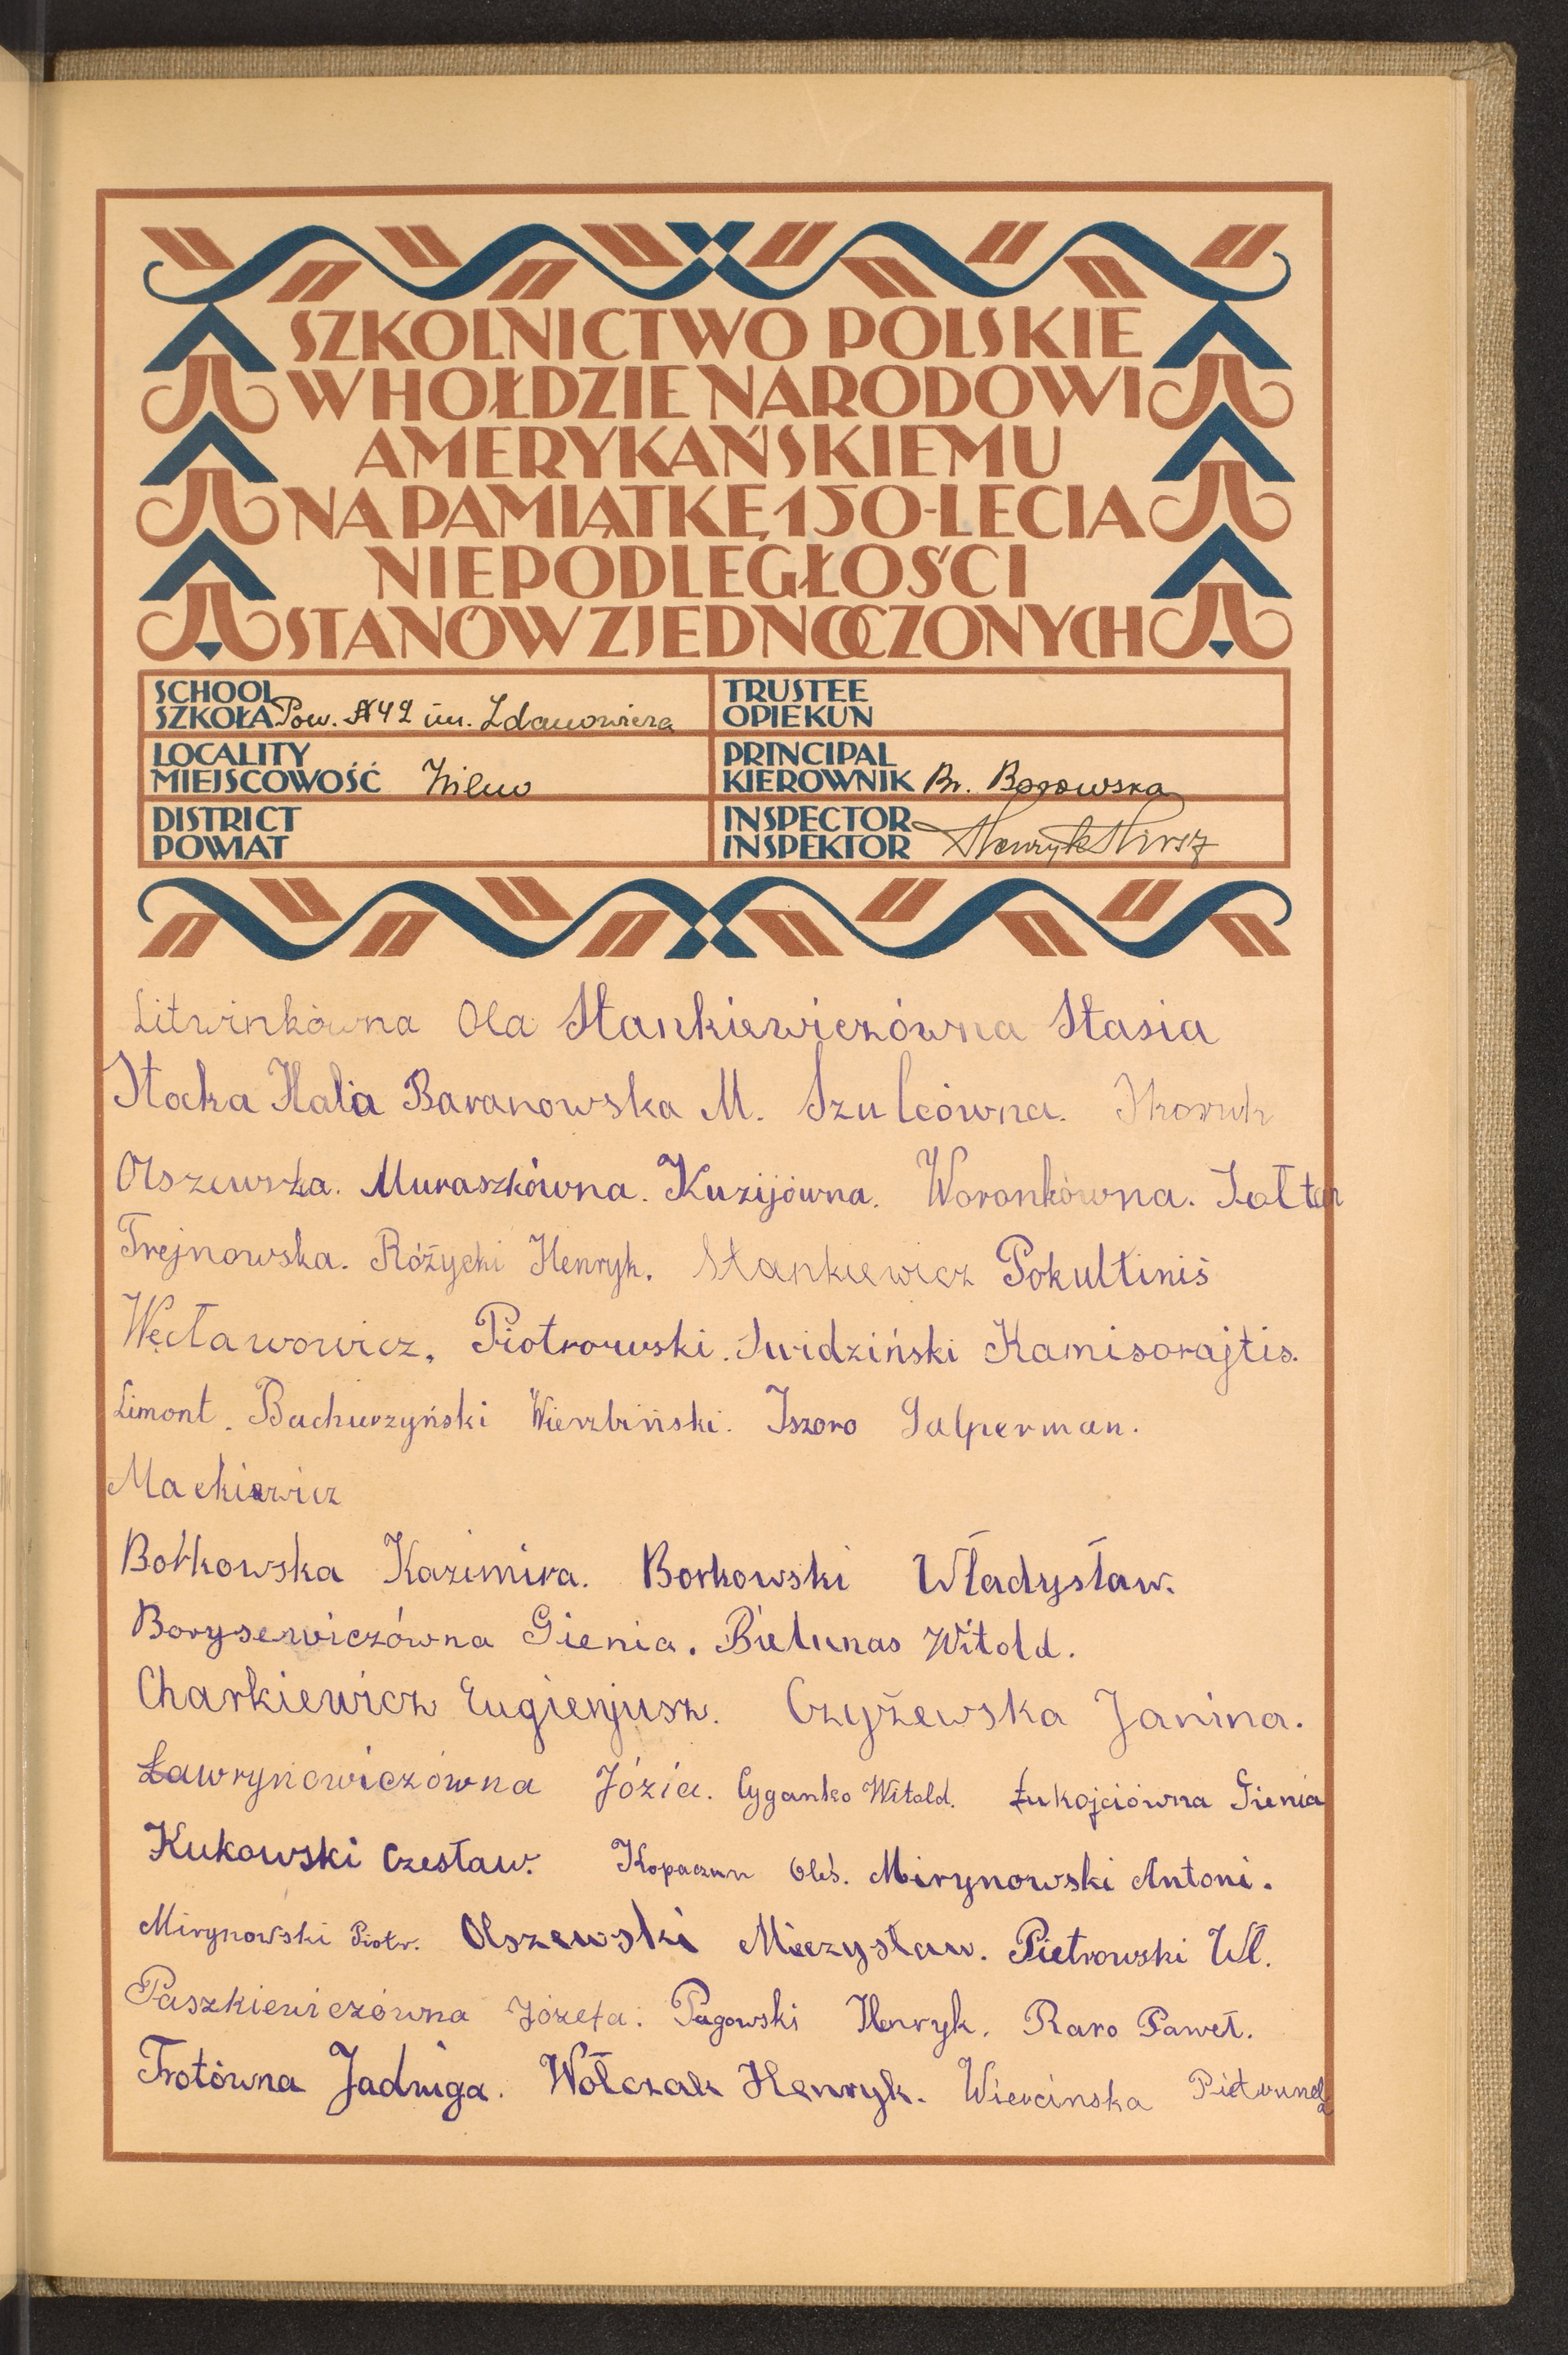 SZKOLNICTWO POLSKIE
W HOŁDZIE NARODOWI
AMERYKAŃSKIEMU
NA PAMIĄTKĘ 150-LECIA
NIEPODLEGŁOŚCI
STANÓW ZJEDNOCZONYCH
SCHOOL
SZKOŁA Pow. №42 im. Zdanowicza
TRUSTEE
OPIEKUN
LOCALITY
MIEJSCOWOŚĆ Wilno
PRINCIPAL
KIEROWNIK Br. Borowska
DISTRICT
POWIAT
INSPECTOR
INSPEKTOR Henryk
Litwinkówna Ola Stankiewiczówna Stasia
Stocka Hala Baranowska M. Szulcówna.
Olszewska. Muraszkówna. Kuzijówna. Woronkówna.
Trejnowska. Różycki Henryk. Stankiewicz Pokultiniś
Węcławowicz. Piotrowski. Swidziński Kamisorajtis.
Limont. Bachurzyński Wierzbiński. Iszoro Galperman.
Mackiewicz
Borkowska Kazimira. Borkowski Władysław.
Borysewiczówna Gienia. Bielunas Witold.
Charkiewicz Eugienjusz. Czyżewska Janina.
Ławrynowiczówna Józia. Cyganko Witold. Łukojciówna Gienia
Kukowski Czesław. Mirynowski Antoni.
Mirynowski Piotr. Olszewski Mieczysław. Pietrowski Wł.
Paszkiewiczówna Józefa. Pagowski Henryk. Raro Paweł.
Trotówna Jadwiga. Wołczak Henryk. Wiercinska Pietrunela